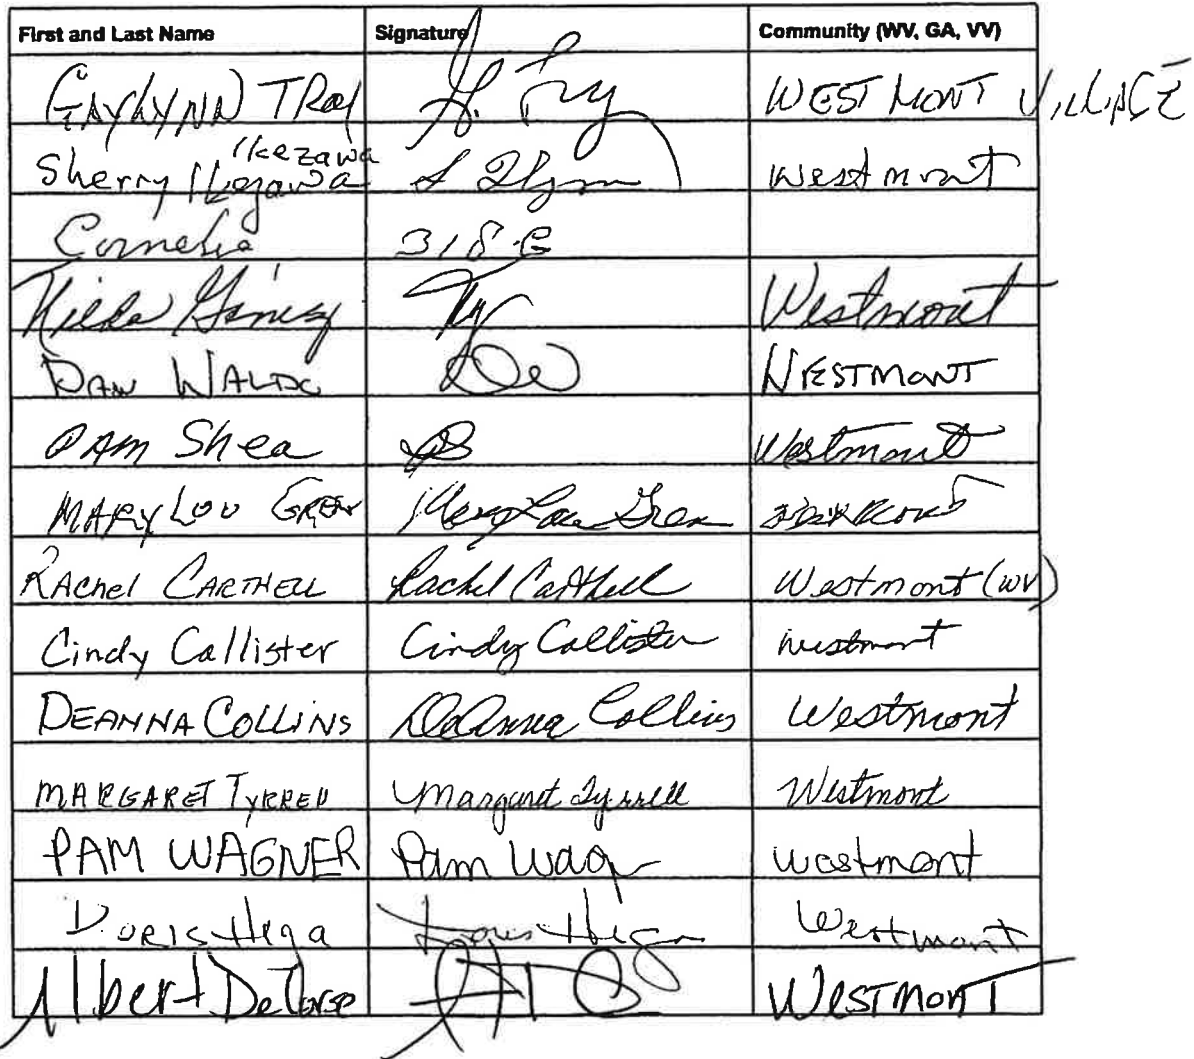 First and Last Name Signature Community (WV, GA, VV)
GAYLYNN TRoy G. Try WESTMONT VILLAGE
Ikezawa
Sherry Ikezawa S Westmont
Cornelia 318 G
Hilda Westmont
DAN WALDO WESTMONT
PAM Shea PS Westmont
MARY LOU GREN Mary Lou Gren
RAChel CARTHELL Rachel Carthell Westmont (WV)
Cindy Callister Cindy Callister Westmont
DEANNA COLLINS DeAnna Collins Westmont
MARGARET TYRRELL Margaret Tyrrell Westmont
PAM WAGNER Pam Wagn Westmont
DORIS Higa Doris Higa Westmont
Albert DeTorse WESTMONT